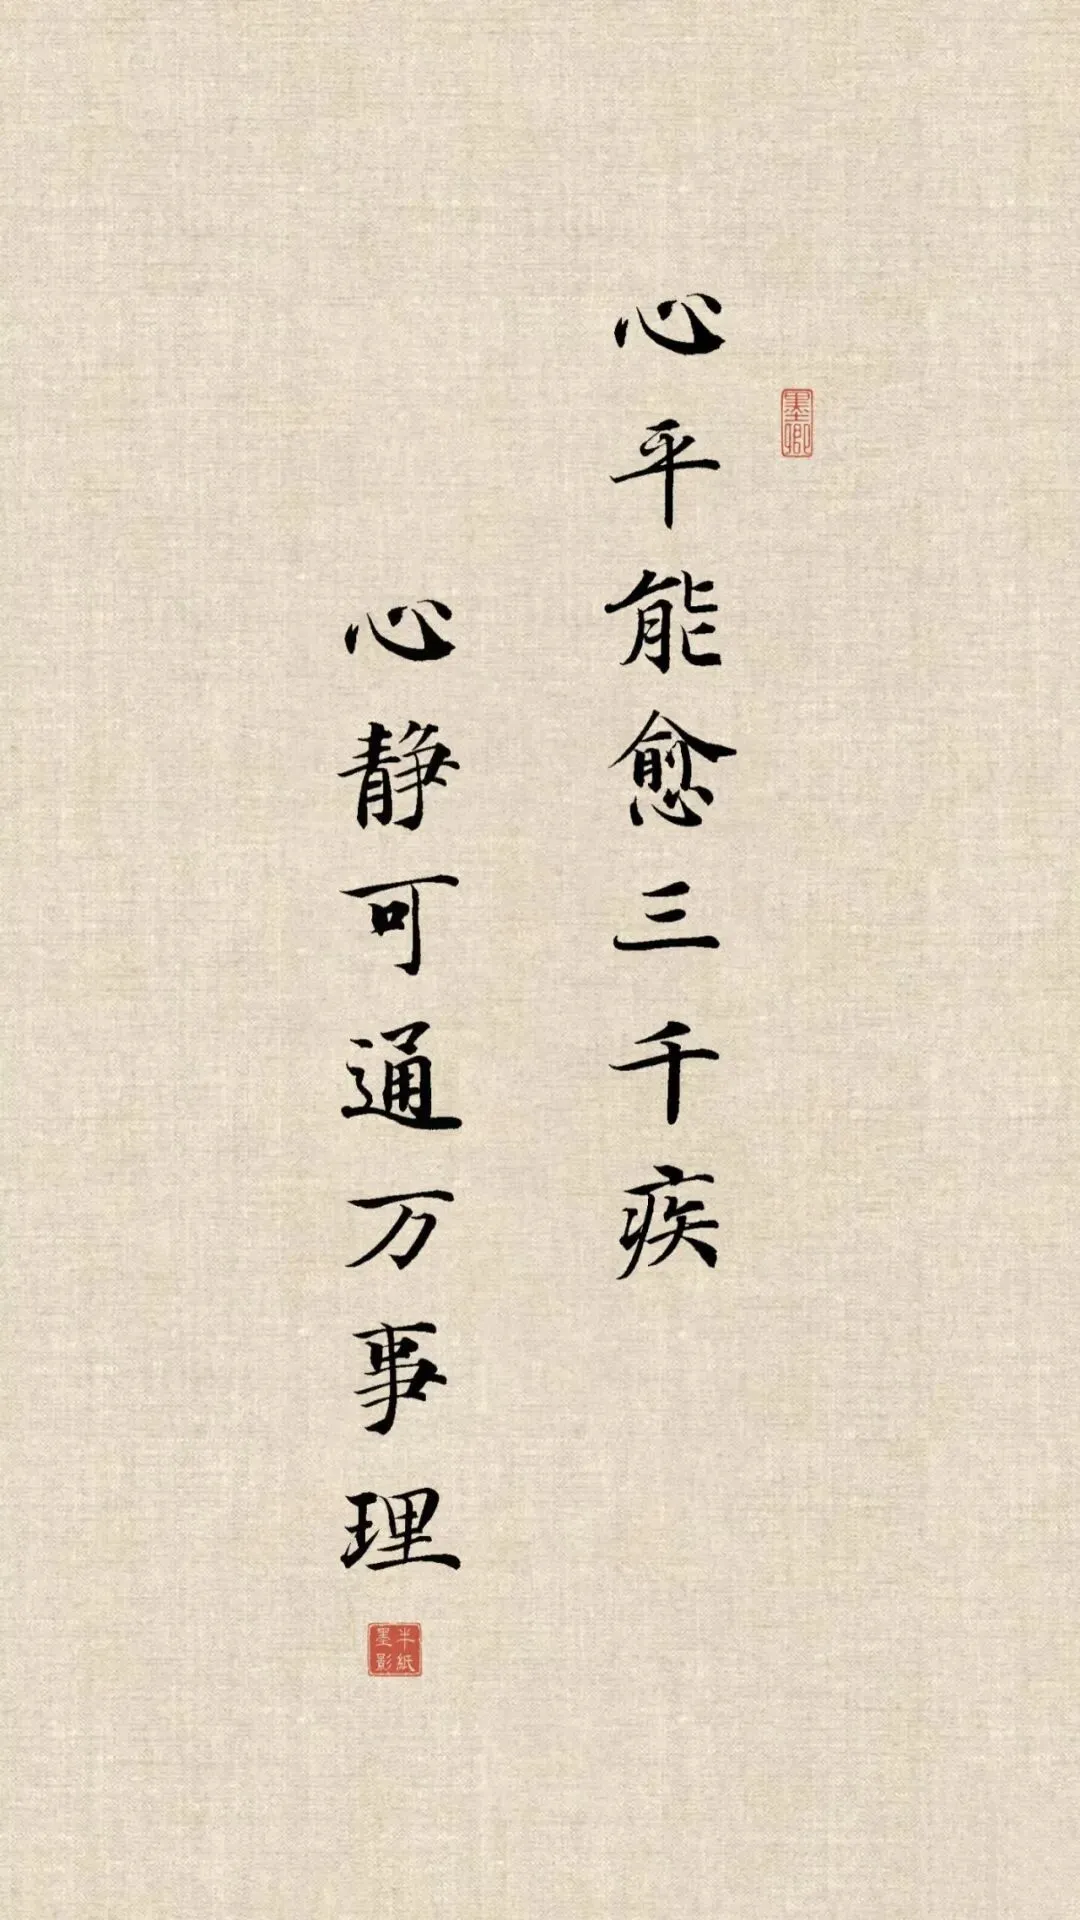 心平能愈三千疾
墨卿
心静可通万事理
半紙墨影